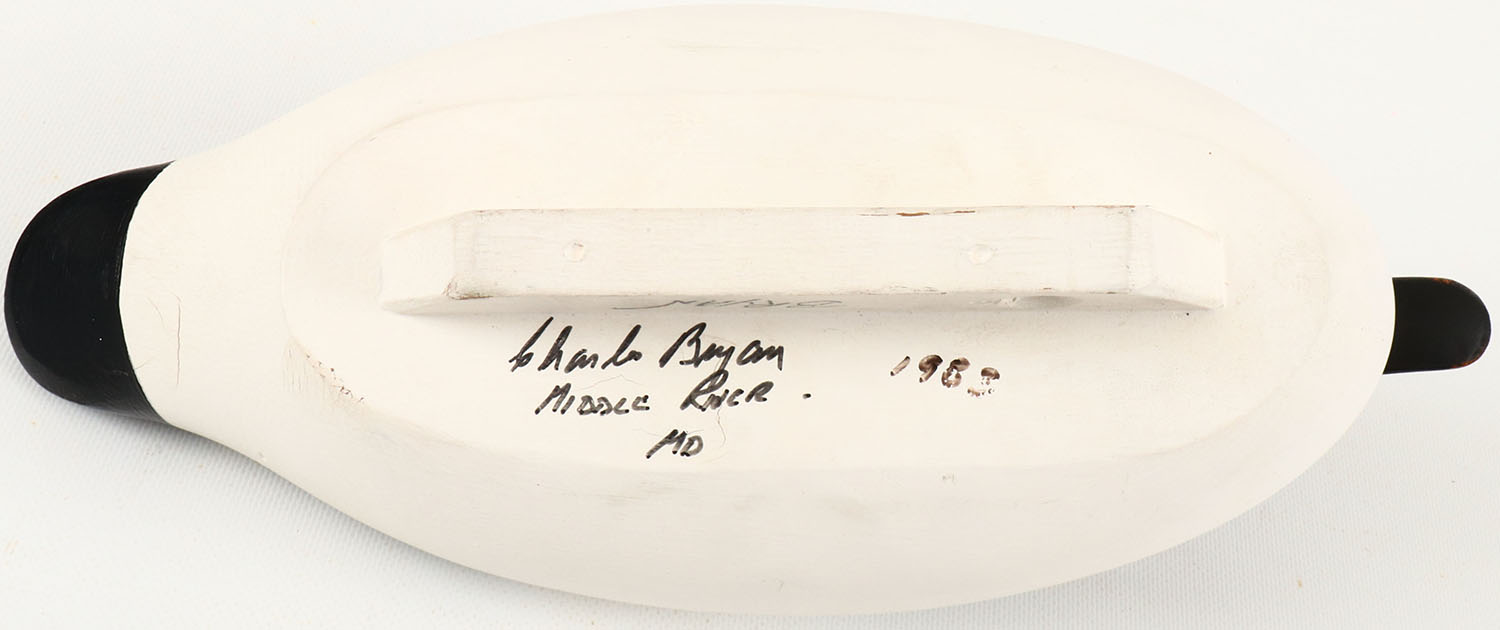 Charles Bryan
MIDDLE RIVER.
MD
1983